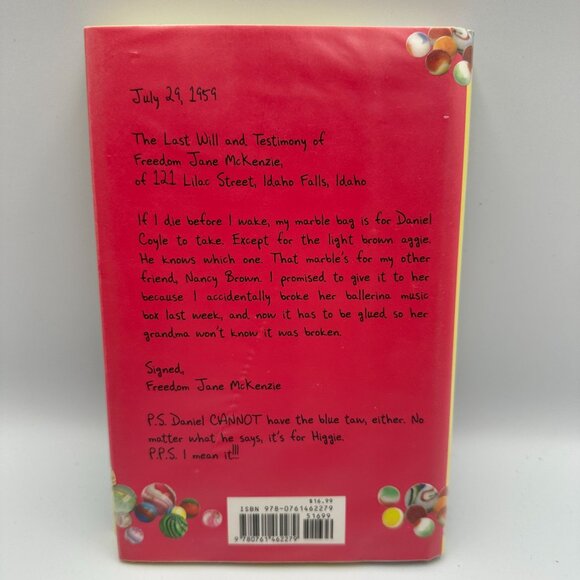 July 29, 1959
The Last Will and Testimony of
Freedom Jane McKenzie,
of 121 Lilac Street, Idaho Falls, Idaho
If I die before I wake, my marble bag is for Daniel
Coyle to take. Except for the light brown aggie.
He knows which one. That marble's for my other
friend, Nancy Brown. I promised to give it to her
because I accidentally broke her ballerina music
box last week, and now it has to be glued so her
grandma won't know it was broken.
Signed,
Freedom Jane McKenzie
P.S. Daniel CANNOT have the blue taw, either. No
matter what he says, it's for Higgie.
P.P.S. I mean it!!!
$16.99
ISBN 978-0761462279
51699
9 780761 462279